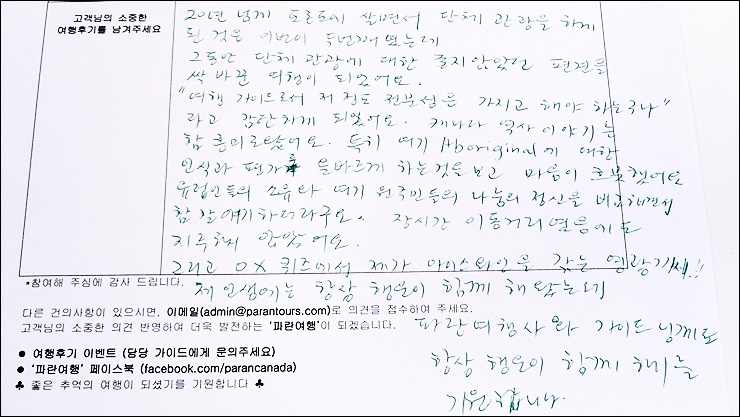 고객님의 소중한
여행후기를 남겨주세요
20년 넘게 토론토에 살면서 단체 관광을 하게
된 것은 이번이 두번째 였는데
그동안 단체 관광에 대한 좋지 않았던 편견을
싹 바꾼 여행이 되었어요.
"여행 가이드로서 저 정도 전문성은 가지고 해야 하는구나"
라고 감탄하게 되었어요. 캐나다 역사 이야기는
참 흥미로왔어요. 특히 여기 Aboriginal에 대한
인식과 평가를 올바르게 하는것을 보고 마음이 흐뭇했어요
유럽인들의 소유와 여기 원주민들의 나눔의 정신을 비교해면서
참 잘 얘기하더라구요. 장시간 이동거리였음에도
지루하지 않았어요.
그리고 OX 퀴즈에서 제가 아이스와인을 갖는 영광까지!!
*참여해 주심에 감사 드립니다.
제 인생에는 항상 행운이 함께 해 왔는데
다른 건의사항이 있으시면, 이메일(admin@parantours.com)로 의견을 접수하여 주세요.
고객님의 소중한 의견 반영하여 더욱 발전하는 '파란여행'이 되겠습니다.
파란여행사와 가이드님께도
● 여행후기 이벤트 (담당 가이드에게 문의주세요)
● '파란여행' 페이스북 (facebook.com/parancanada)
항상 행운이 함께 하기를
♣ 좋은 추억의 여행이 되셨기를 기원합니다 ♣
기원합니다.